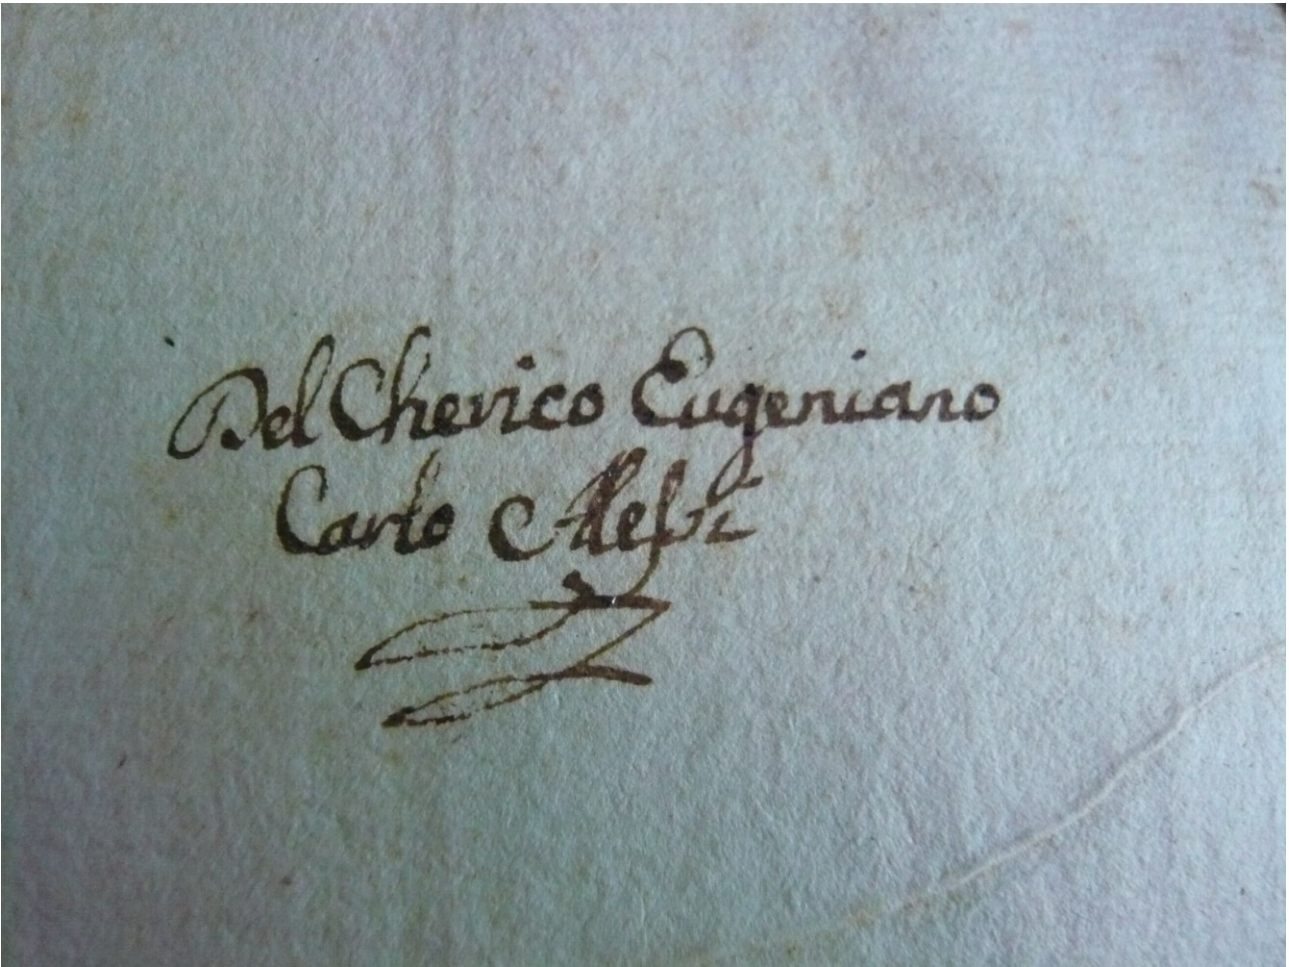 Del Cherico Eugeniano
Carlo